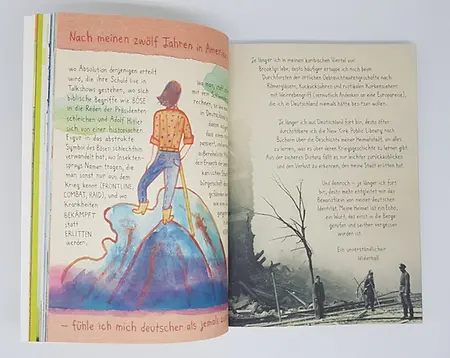 Nach meinen zwölf Jahren in Amerika
wo Absolution denjenigen erteilt
wird, die ihre Schuld live in
Talkshows gestehen, wo sich
biblische Begriffe wie BÖSE
in die Reden der Präsidenten
schleichen und Adolf Hitler
sich von einer historischen
Figur in das abstrakte
Symbol des Bösen schlechthin
verwandelt hat, wo Insekten-
sprays Namen tragen, die
man sonst nur aus dem
Krieg kennt (FRONTLINE,
COMBAT, RAID), und wo
Krankheiten
BEKÄMPFT
statt
ERLITTEN
werden,
— fühle ich mich deutscher als jemals
Je länger ich in meinem karibischen Viertel von
Brooklyn lebe, desto häufiger ertappe ich mich beim
Durchforsten der örtlichen Gebrauchtwarengeschäfte nach
Römergläsern, Kuckucksuhren und rustikalen Korkenziehern
die ich in Deutschland niemals hätte besitzen wollen.
Je länger ich aus Deutschland fort bin, desto öfter
durchstöbere ich die New York Public Library nach
Büchern über die Geschichte meiner Heimatstadt, um alles
zu lernen, was es über deren Kriegsgeschichte zu lernen gibt.
Aus der sicheren Distanz fällt es mir leichter zurückzublicken
und den Verlust zu erkennen, den meine Stadt erlitten hat.
Und dennoch – je länger ich fort
bin, desto mehr entgleitet mir das
Bewusstsein von meiner deutschen
Identität. Meine Heimat ist ein Echo,
ein Wort, das einst in die Berge
gerufen und seither vergessen
worden ist.
Ein unverständlicher
Widerhall.